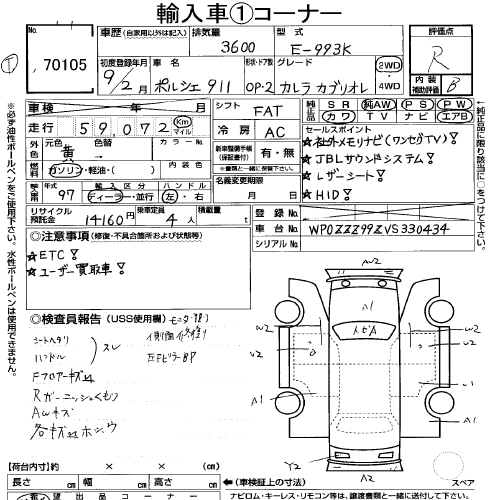 輸入車①コーナー
70105
車歴 (自家用以外は記入) 排気量 型式 評価点
3600 E-993K R
初度登録年月 車名 形状・ドア数 グレード 2WD
9/2月 ポルシェ 911 OP-2 カレラ カブリオレ ・4WD
内装補助評価 B
車検 年 月 シフト FAT
純正品 SR 純AW PS PW
カワ TV ナビ エアB
走行 59,072 Km マイル 冷房 AC
セールスポイント
外色 元色 黄 色替 カラーNo.
★社外メモリナビ(ワンセグTV)!
燃料 ガソリン・軽油・( ) 内装色
新車整備手帳(保証書付) 有・無
★JBLサウンドシステム!
輸入年 97 輸入区分 ディーラー・並行 ハンドル 左・右
名義変更期限 月 日
★レザーシート!
★HID!
リサイクル預託金 14160円 乗車定員 4人 積載量 t
登録No.
車台No. WP0ZZZ99ZVS330434
シリアルNo.
◎注意事項 (修復・不具合箇所および状態等)
★ETC!
★ユーザー買取車!
◎検査員報告 (USS使用欄)
シートヘタリ
ハンドル スレ
Fフロアーキズ
Rガーニッシュくもり
AWキズ
※必ず油性ボールペンをご使用下さい。水性ボールペンは使用できません。
A2
A1
W2
V2
A1
Y2
A2
【荷台内寸】約 × × (cm)
長さ cm 幅 cm 高さ cm
スペア
(車検証上の寸法)
希望 出品コーナー
ナビロム・キーレス・リモコン等は、譲渡書類と一緒に送付して下さい。